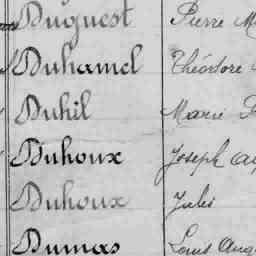 Duquest Pierre
Duhamel Théodore
Duhil Marie
Duhoux Joseph
Duhoux Jules
Dumas Louis Aug